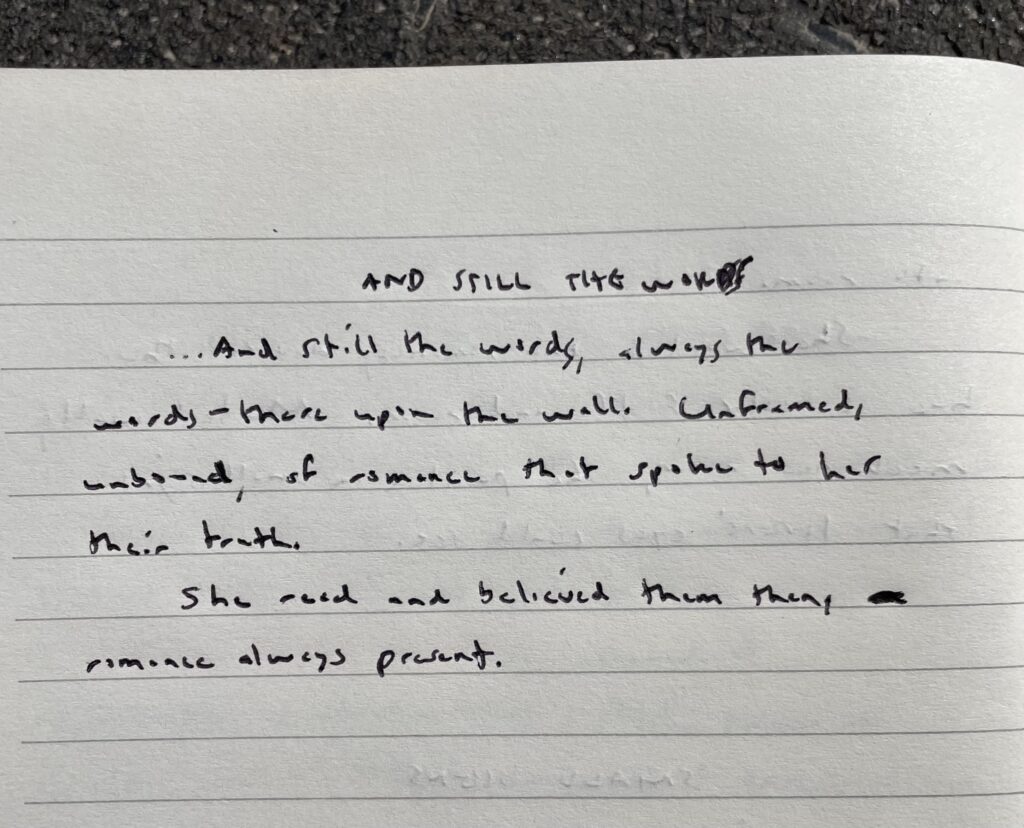 AND STILL THE WORDS
...And still the words, always the
words - there upon the wall. Unframed,
unbound, of romance that spoke to her
their truth.
She read and believed them then,
romance always present.